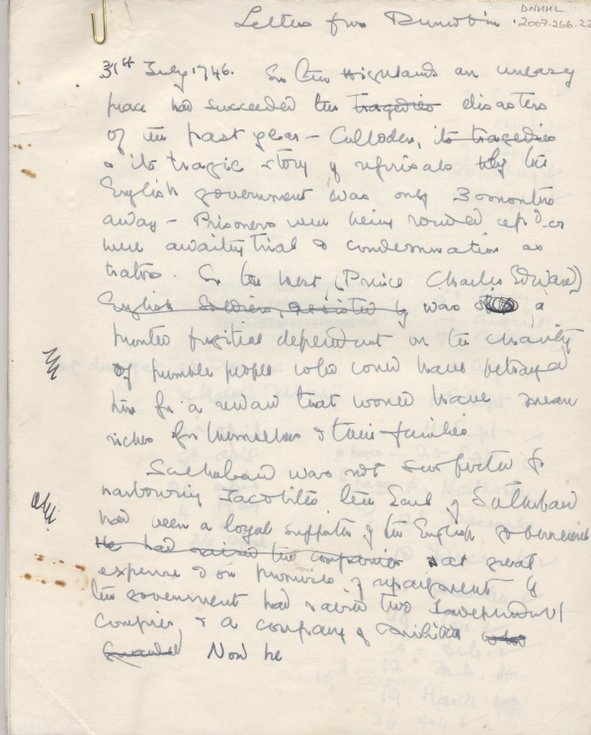 DNHHL
Letters from Dunrobin 2007.266.22
31st July 1746. In the Highlands an uneasy
peace had succeeded the tragedies disasters
of the past year - Culloden, its tragedies
& its tragic story of reprisals by the
English government was only 3 months
away - Prisoners were being rounded up & or
were awaiting trial & condemnation as
traitors. In the West (Prince Charles Edward)
English Soldiers, assisted by was a
hunted fugitive dependent on the charity
of humble people who could have betrayed
him for a reward that would have mean
riches for themselves & their families
Sutherland was not suspected of
harbouring Jacobites the Earl of Sutherland
had been a loyal supporter of the English government
He had raised two companies at great
expense & on promise of repayment by
the government had raised two Independent
Companies & a company of militia who
guarded Now he